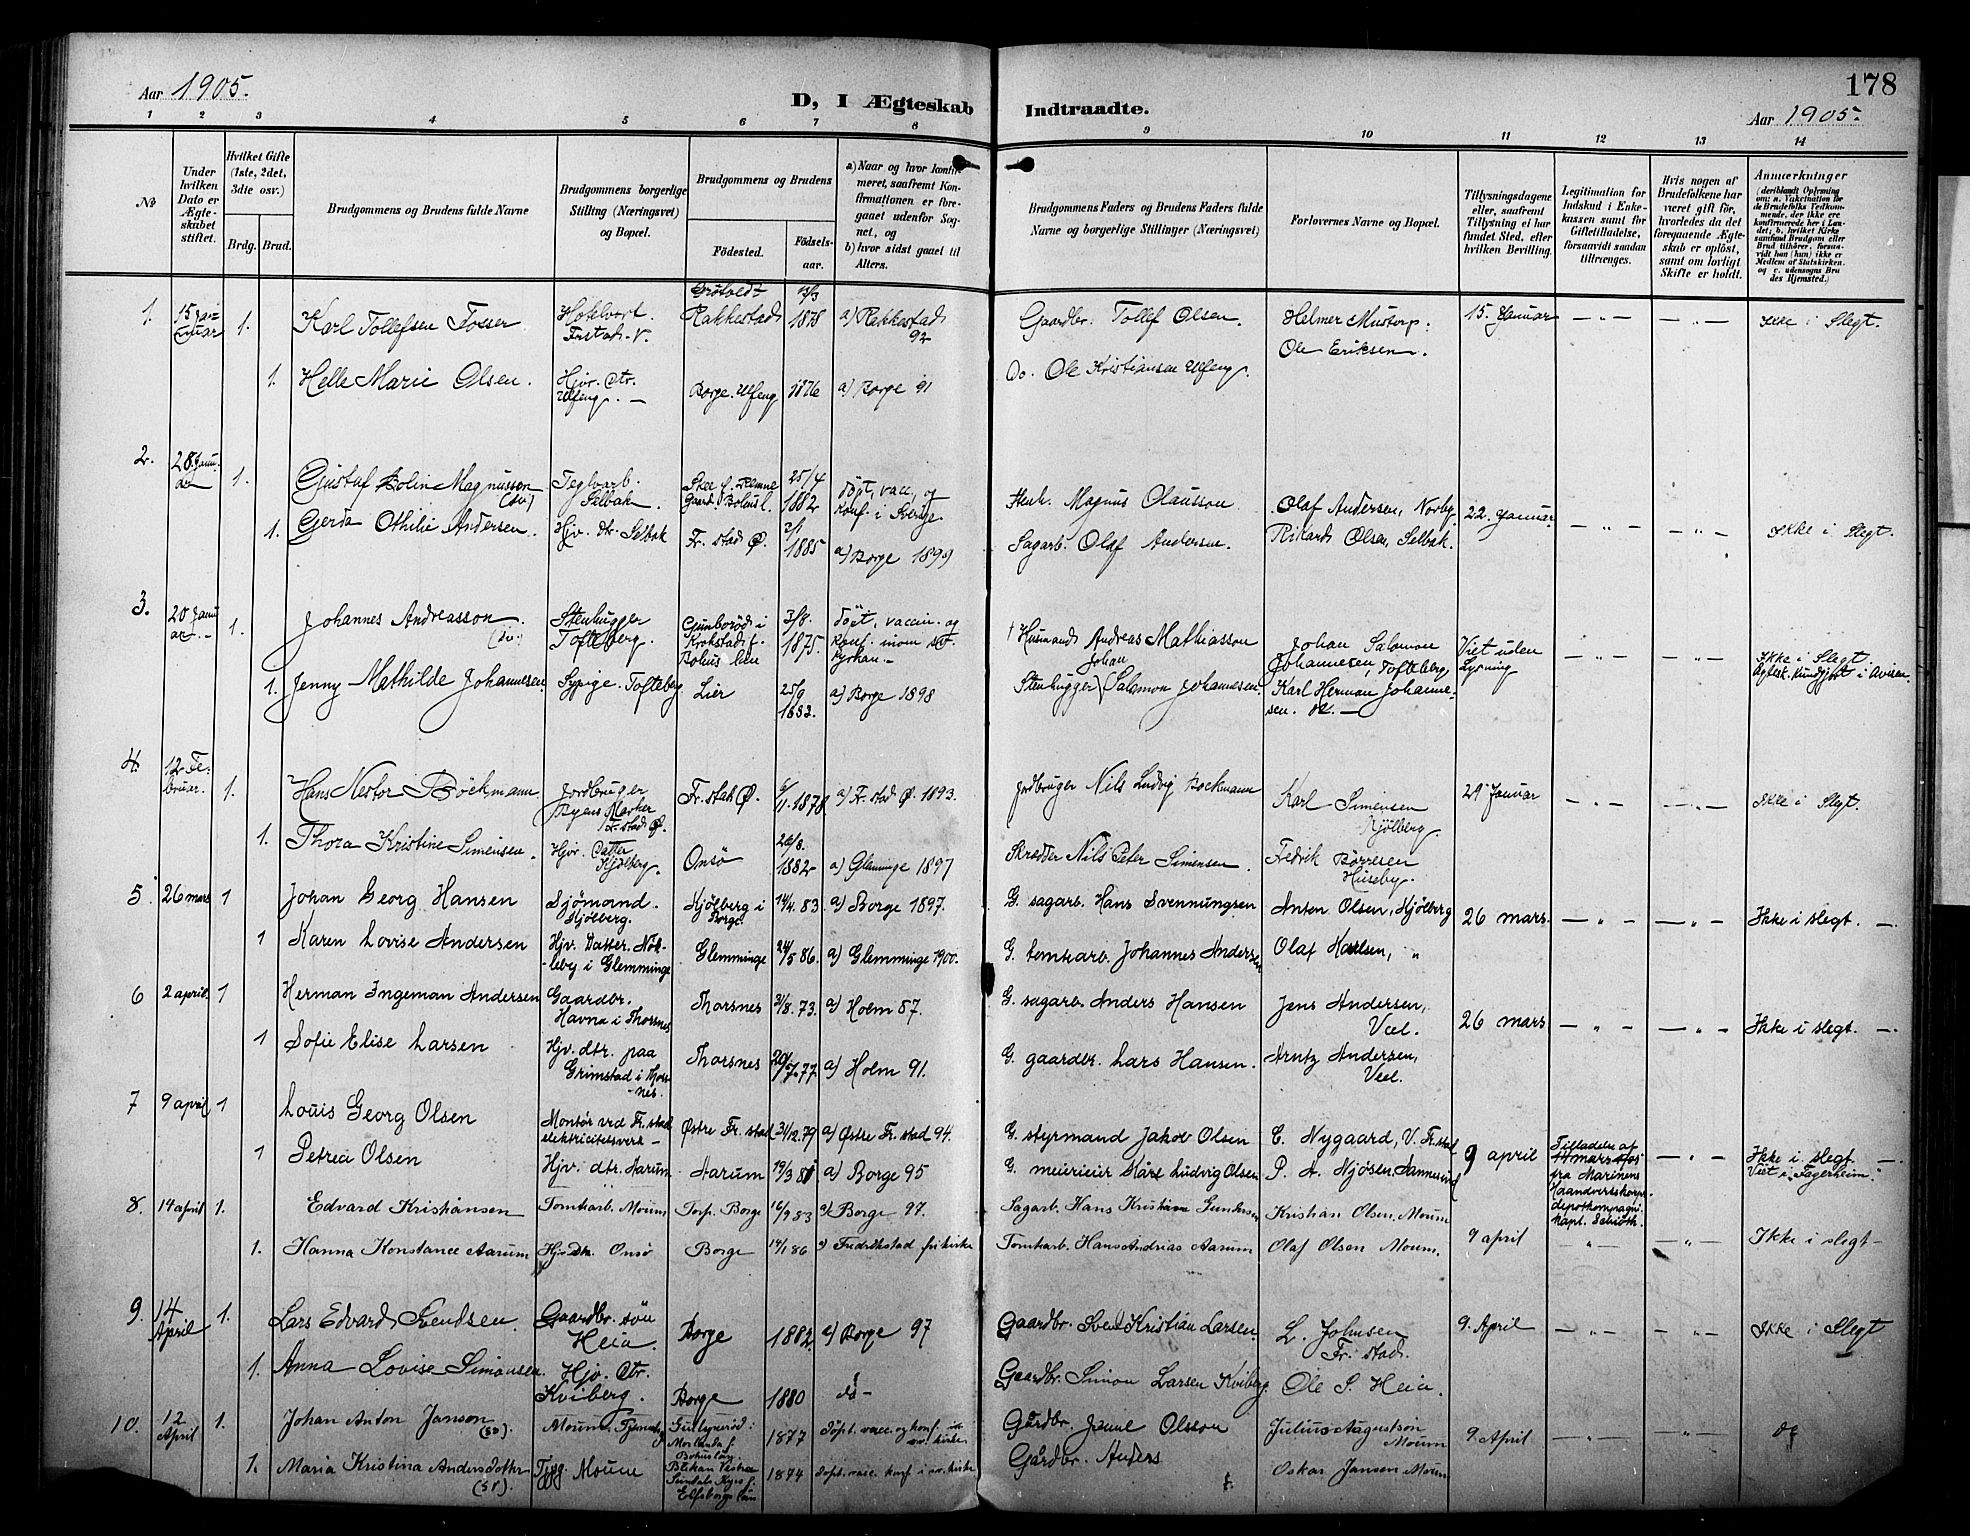 178
Aar 1905.
D, I Ægteskab Indtraadte.
Aar 1905.
1 2 3 4 5 6 7 8 9 10 11 12 13 14
No
Under hvilken Dato er Ægteskabet stiftet.
Hvilket Gifte (1ste, 2det, 3dte osv.)
Brdg. Brud.
Brudgommens og Brudens fulde Navne
Brudgommens borgerlige Stilling (Næringsvei) og Bopæl.
Brudgommens og Brudens
Fødested.
Fødselsaar.
a) Naar og hvor konfirmeret, saafremt Konfirmationen er foregaaet udenfor Sognet, og
b) hvor sidst gaaet til Alters.
Brudgommens Faders og Brudens Faders fulde Navne og borgerlige Stillinger (Næringsvei)
Forlovernes Navne og Bopæl.
Tillysningsdagene eller, saafremt Tillysning ei har fundet Sted, efter hvilken Bevilling.
Legitimation for Indskud i Enkekassen samt for Giftetilladelse, forsaavidt saadan tiltrænges.
Hvis nogen af Brudefolkene har været gift før, hvorledes da det foregaaende Ægteskab er opløst, samt om lovligt Skifte er holdt.
Anmærkninger
1. 15 Januar 1. Karl Tollefsen Fosser Rakkestad 13/3 1878 a) Rakkestad 92 Gaardbr. Tollef Olsen. Helmer Mustorp. Ole Eriksen. 15. Januar Ikke i Slegt.
1. Helle Marie Olsen. Hjv. dtr. Ulfeng. Borge. Ulfeng 1876 a) Borge 91 Do. Ole Kristiansen Ulfeng.
2. 28. Januar 1. Gustaf Bolin Magnusson (sv.) Teglvarb. Selbak. 25/4 1882 döpt, vacc. og konf. i Sverige Magnus Olausson. Olaf Andersen, Norby. 22. Januar Ikke i Slegt.
1. Gerda Othilie Andersen. Hjv. dtr. Selbak Fr. stad Ø. 1885 a) Borge 1899 Sagarb. Olaf Andersen. Rikard Olsen, Selbak.
3. 20 Januar 1. Johannes Andreasson. (sv.) Stenhugger Tofteberg. Krokstad f. Bohus len 3/8. 1875. döpt, vaccin. og konf. inom sv. kyrkan. † Husmand Andreas Mathiasson Johan Salomon Johannesen, Tofteberg, Viet uden Lysning Ikke i Slegt
1. Jenny Mathilde Johannesen. Sypige. Tofteberg Lier 25/9 1882. a) Borge 1898 Stenhugger Johan Salomon Johannesen Karl Herman Johannesen. do.
4. 12 Februar. 1. Hans Nestor Böckmann Jordbruger Byens Marker Fr. stad Ø. Fr. stad Ø. 1878 a) Fr. stad Ø. 1893. Jordbruger Nils Ludvig Bockmann Karl Simensen Kjölberg. 29 Januar Ikke i Slegt.
1. Thora Kristine Simensen. Hjv. Datter Kjölberg. Onsö 26/8. 1882 a) Glemminge 1897 Skrædder Nils Peter Simensen. Fredrik Börresen Huseby.
5 26 mars 1 Johan Georg Hansen Sjömand. Kjölberg. Kjölberg i Borge. 14/4. 83. a) Borge 1897. G. sagarb. Hans Svenningsen Anton Olsen, Kjölberg 26 mars. Ikke i slegt.
1 Karen Lovise Andersen Hjv. Datter. Nökleby i Glemminge Glemminge 24/5 86. a) Glemminge 1900. G. tomtarb. Johannes Andersen Olaf Karlsen, "
6 2 april. 1 Herman Ingeman Andersen Gaardbr. Havna i Thorsnes Thorsnes 31/8. 73. a) Holm 87. G. sagarb. Anders Hansen Jens Andersen, Veel. 26 mars Ikke i slegt.
1 Sofie Elise Larsen Hjv. dtr. paa Grimstad i Thorsnes. Thorsnes 20/7. 77. a) Holm 91. G. gaardbr. Lars Hansen. Arntz Andersen, Veel.
7 9 april 1 Louis Georg Olsen Montör ved Fr. stad elektricitetsverk Østre Fr. stad 31/12. 79 a) Østre Fr. stad 94. G. styrmand Jakob Olsen C. Nygaard, V. Fr. stad 9 april Tilladelse af 14 mars 1905 fra Marinens Haandverkskorps. depotkompagni. Ikke i slegt Viet i "Fagerheim".
1 Petrea Olsen Hjv. dtr. Aarum Aarum 19/3 81 a) Borge 95 G. meieriejer Karl Ludvig Olsen P. A. Njösen,
8. 14 april 1. Edvard Kristiansen Tomtarb. Moum Torp. Borge 16/9 83 a) Borge 97. Sagarb. Hans Kristian Gundersen Kristian Olsen. Moum 9 april Ikke i slegt
1. Hanna Konstance Aarum Hjv. dtr. Onsö Borge 14/1 86 a) Fredrikstad frikirke Tomtarb. Hans Andrias Aarum Olaf Olsen Moum.
9. 14 April 1. Lars Edvard Svendsen. Gaardbr. sön Heia. Borge 1882. a) Borge 97 Gaardbr. Svend Kristian Larsen. L. Johnsen Fr. stad. 9. April Ikke i Slegt
1. Anna Lovise Simonsen. Hjv. Dtr. Kviberg. Borge 1880 do Gaardbr. Simon Larsen Kviberg. Ole S. Heia.
10. 12 April 1. Johan Anton Janson (sv). Moum. Morlanda f. Bohuslän 1877 Döpt. vacc. og konf. i sv. kirke Gårdbr. Olsson Julius Augustson Moum 9. April do
1. Maria Kristina Andersdotter (sv.) Moum Elfsborgs län 1874 Döpt. vacc. konf i sv. kirke Gårdbr. Anders Oskar Jansen Moum